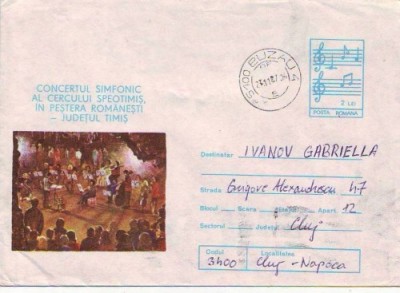 CONCERTUL SIMFONIC
AL CERCULUI SPEOTIMIȘ,
ÎN PEȘTERA ROMÂNEȘTI
– JUDEȚUL TIMIȘ
5100 BUZAU 4
2 LEI
POSTA ROMANA
Destinatar IVANOV GABRIELLA
Strada Grigore Alexandrescu 47
Blocul Scara Etajul Apart. 12
Sectorul Județul Cluj
Codul Localitatea
3400 Cluj - Napoca